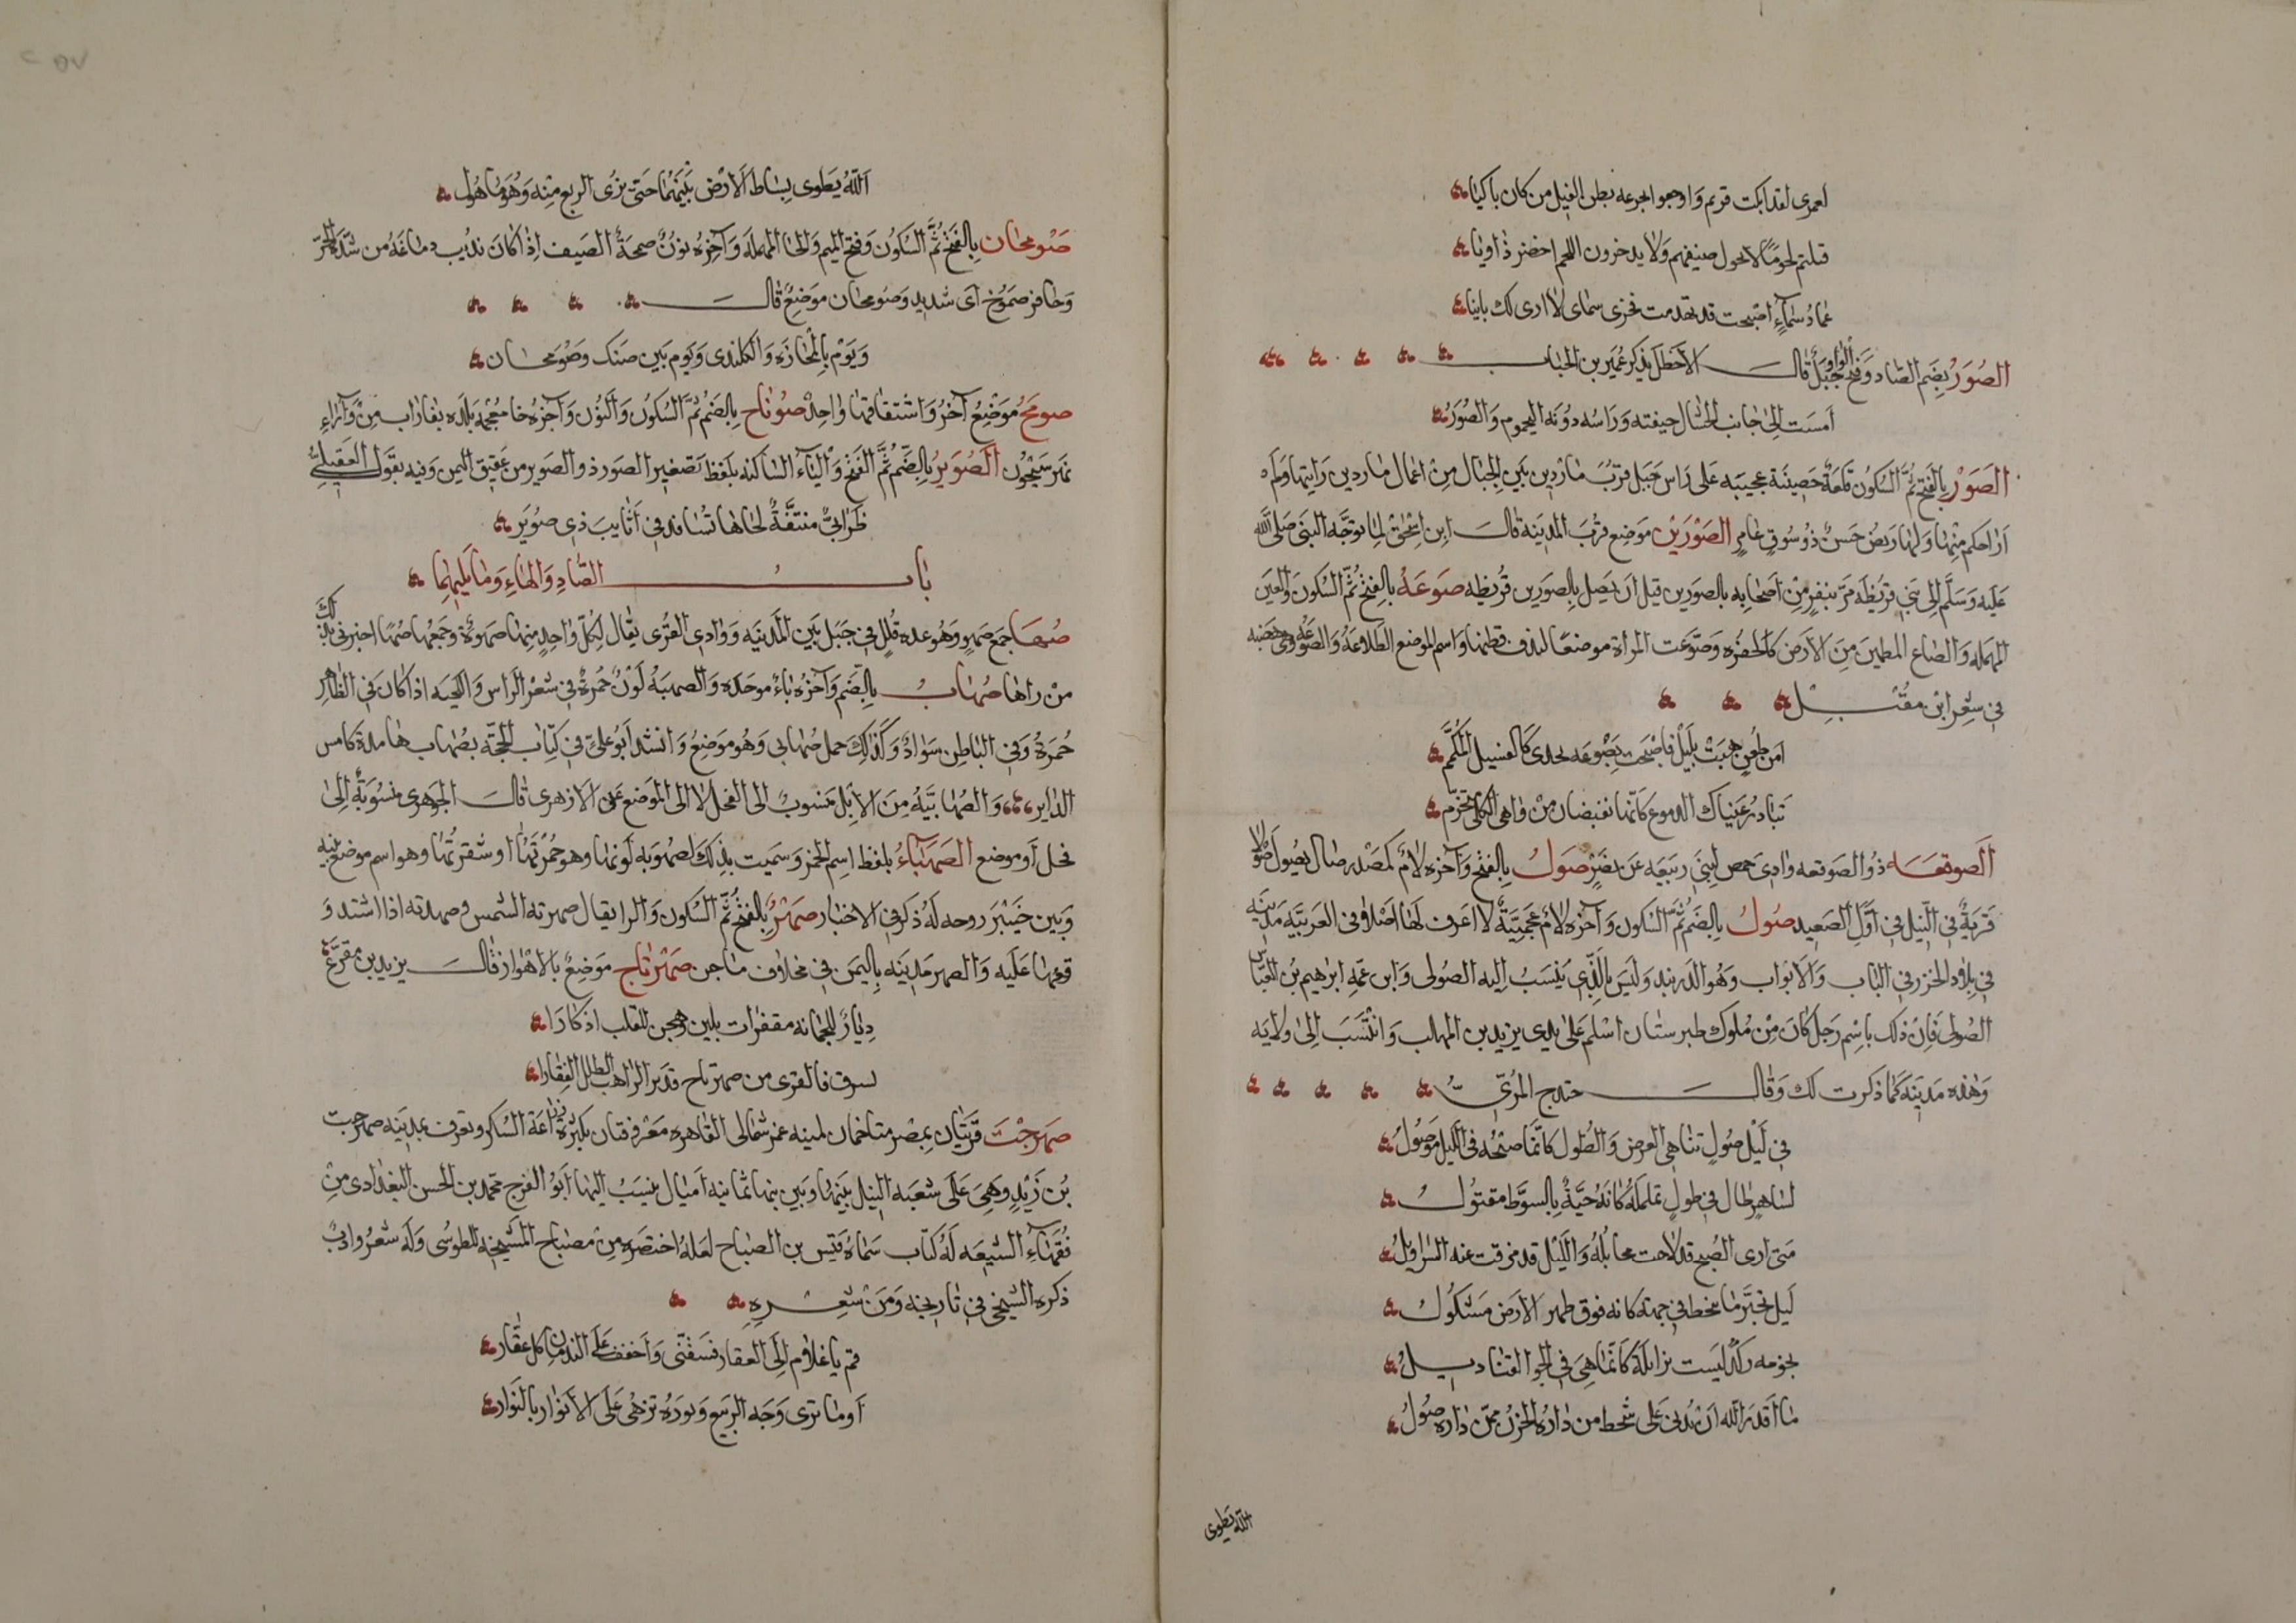 لعمرى لقد ابكت قريم واوجعوا بجرعه بطن الفيل من كان باكيا
قبلتم لحوما لايحول ضيفهم ولا يدخرون اللحم اخضر ذاويا
عماد سماء اصبحت قد تهدمت فخرى سماى لا ارى لك بانيا
الصُوَرُ بضم الصاد وفتح الواو جبل قال الاخطل يذكر عمير بن الحباب
امست الى جانب الحشاك جيفته وراسه دونه اليحموم والصُوَرُ
الصَوْرُ بالفتح ثم السكون قلعة حصينة عجيبه على راس جبل قرب ماردين بين الجبال من اعمال ماردين رايتها ولم
ار احكم منها ولها ربض حسن ذو سوق عامر الصَوْرَيْن موضع قرب المدينة قال ابن اسحق لما توجه النبى صلى الله
عليه وسلم الى بنى قريظه مر بنفر من اصحابه بالصورين قبل ان يصل بالصورين قريظه صَوعَةُ بالفتح ثم السكون والعين
المهمله والصاع المطمين من الارض كالحفره وصوعت المراة موضعا لندف قطنها واسم الموضع الصاعة والصوعه وهى هضبه
فى شعر ابن مقبل
امن ظعن هبت بليل فاصبحت بصوعه تحدى كالفسيل المكمم
تبادر عيناك الدموع كانما تفيضان من واهى الكلى متخرم
الصوقعَه ذو الصوقعه وادى حمص لبنى ربيعه عن نصر صَولُ بالفتح وآخره لام كمصدر صال يصول صولا
قرية فى النيل فى اول الصعيد صُولُ بالضم ثم السكون وآخره لام عجمية لا اعرف لها اصلا فى العربيه مدينه
فى بلاد الخزر فى الباب والابواب وهو الدربند وليس بالذى ينسب اليه الصولى وابن عمه ابرهيم بن العباس
الصولى فان ذلك باسم رجل كان من ملوك طبرستان اسلم على يدى يزيد بن المهلب وانتسب الى ولايه
وهذه مدينه كما ذكرت لك وقال حندج المرى
فى ليل صول تناهى العرض والطول كانما صبحه فى الليل موصول
لساهر طال فى طول تململه كانه حية بالسوط مقتول
متى ارى الصبح قد لاحت مخايله والليل قد مزقت عنه السراويل
ليل تحير ما ينحط فى جهة كانه فوق ظهر الارض مشكول
نجومه ركد ليست بزايلة كانما هى فى الجو القناديل
ما اقدر الله ان يدنى على شحط من داره الحزن ممن داره صول
الله يطوى
الله يطوى بساط الارض بينهما حتى يرى الربع منه وهو ماهول
صَومحان بالفتح ثم السكون وفتح الميم والحا المهمله وآخره نون صمحة الصيف اذا كان يذيب دماغه من شدة الحر
وحافر صموح اى شديد وصومحان موضع قال
ويوم بالمجازه والكلندى ويوم بين ضنك وصومحان
صومَحُ موضع آخر واشتقاقهما واحد صوناخ بالضم ثم السكون والنون وآخره خا معجمة بلده بفاراب من وراء
نهر سيحون الصُوَيرُ بالضم ثم الفتح والياء الساكنه بلفظ تصغير الصور ذو الصوير من عقيق اليمن وفيه يقول العقيلى
ظرابى منتفة لحاها تسافد فى اثايب ذى صوير
باب الصاد والهاء وما يليهما
صُهَا جمع صهو وهو عده قلل فى جبل بين المدينه ووادى القرى يقال لكل واحد منها صهوة وجمعها صها اخبرنى بذلك
من راها صُهاب بالضم وآخره باء موحده والصهبه لون حمرة فى شعر الراس واللحيه اذا كان فى الظاهر
حمرة وفى الباطن سواد وكذلك جمل صهابى وهو موضع وانشد ابو على فى كتاب الحجة بصهاب هامدة كامس
الدابر والصهابيه من الابل منسوب الى الفحل لا الى الموضع عن الازهرى قال الجوهرى منسوبة الى
فحل او موضع الصَهباء بلفظ اسم الخمر وسميت بذلك لصهوبه لونها وهو حمرتها او شقرتها وهو اسم موضع بينه
وبين خيبر روحه له ذكر فى الاخبار صَهْرُ بالفتح ثم السكون والرا يقال صهرته الشمس وصهدته اذا اشتد و
قعها عليه والصهر مدينه باليمن فى مخلاف ماجن صَهْرتاج موضع بالاهواز قال يزيد بن مفرغ
ديار للجمانه مقفرات بلين وهجن للقلب ادكارا
لسرق فالقرى من صهرتاج فدير الراهب الطلل القفارا
صهرَجْتَ قريتان بمصر متاخمان لمنيه غمر شمالى القاهره معروفتان بكثرة زراعة السكر وتعرف بمدينه صهرجت
بن زيد وهى على شعبه النيل بينها وبين بنها ثمانيه اميال ينسب اليها ابو الفرج محمد بن الحسن البغدادى من
فقهاء الشيعه له كتاب سماه قبس بن المصباح لعله اختصره من مصباح المشيخه للطوسى وله شعر وادب
ذكره الشيخى فى تاريخه ومن شعره
قم يا غلام الى العقار فسقنى واخفف على الندمان كل عقار
اوما ترى وجه الربيع ونوره تزهى على الانوار بالنوار